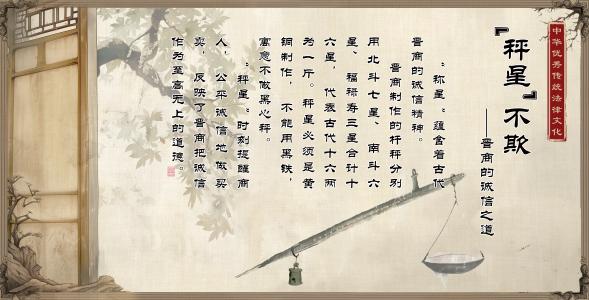 中华优秀传统法律文化
『秤星』不欺
——晋商的诚信之道
“称星”蕴含着古代
晋商的诚信精神。
晋商制作的杆秤分别
用北斗七星、南斗六
星、福禄寿三星合计十
六星，代表古代十六两
为一斤。秤星必须是黄
铜制作，不能用黑铁，
寓意不做黑心秤。
“秤星”时刻提醒商
人，公平诚信地做买
卖，反映了晋商把诚信
作为至高无上的道德。